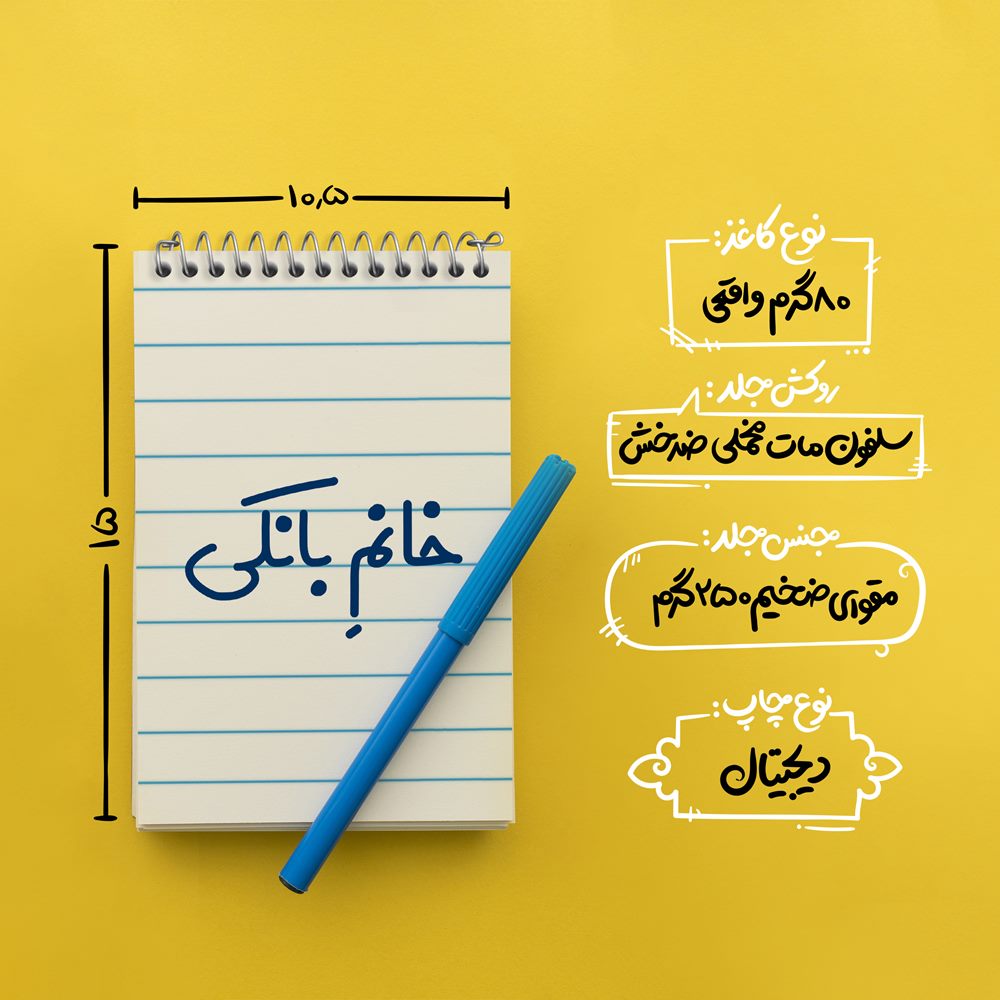 ۱۰٫۵
۱۵
خانمِ بانکی
نوع کاغذ:
۸۰گرم واقعی
روکش جلد:
سلفون مات مخملی ضدخش
جنس جلد:
مقوای ضخیم ۲۵۰گرم
نوع چاپ:
دیجیتال